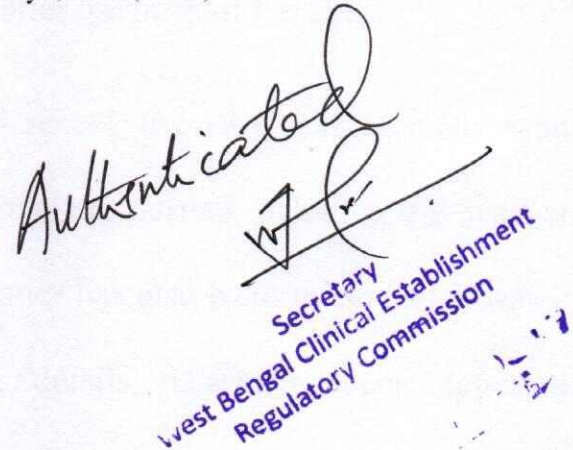 Authenticated
Secretary
West Bengal Clinical Establishment
Regulatory Commission